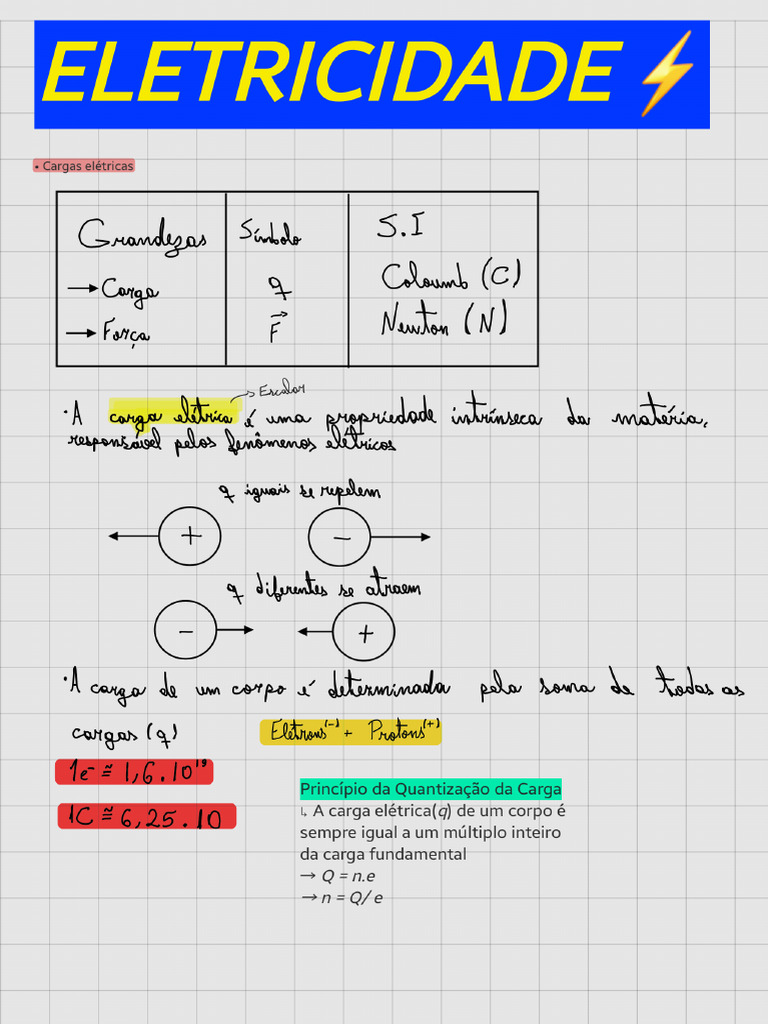 ELETRICIDADE⚡
• Cargas elétricas
Grandezas Símbolo S.I
→ Carga q Coloumb (C)
→ Força F⃗ Newton (N)
→ Escalar
• A carga elétrica é uma propriedade intrínseca da matéria,
responsável pelos fenômenos elétricos
q iguais se repelem
+ −
q diferentes se atraem
− +
• A carga de um corpo é determinada pela soma de todas as
cargas (q) Elétrons⁽⁻⁾ + Protons⁽⁺⁾
1e⁻ ≅ 1,6.10¹⁹
1C ≅ 6,25.10
Princípio da Quantização da Carga
↳ A carga elétrica(q) de um corpo é
sempre igual a um múltiplo inteiro
da carga fundamental
→ Q = n.e
→ n = Q/ e